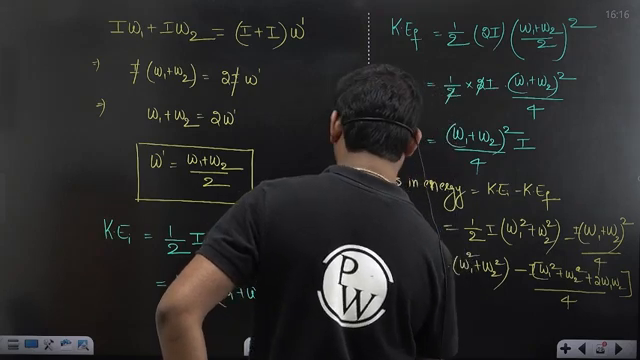 Iω₁ + Iω₂ = (I+I)ω'
⇒ I(ω₁+ω₂) = 2Iω'
⇒ ω₁+ω₂ = 2ω'
ω' = (ω₁+ω₂)/2
K.E₁ = 1/2 I
=
K.E_f = 1/2 (2I) ((ω₁+ω₂)/2)²
= 1/2 × 2I (ω₁+ω₂)²/4
= (ω₁+ω₂)²/4 I
in energy = K.Ei - K.E_f
= 1/2 I(ω₁²+ω₂²) - I(ω₁+ω₂)²/4
(ω₁²+ω₂²) - I[ω₁²+ω₂²+2ω₁ω₂]/4
16:16
P
W